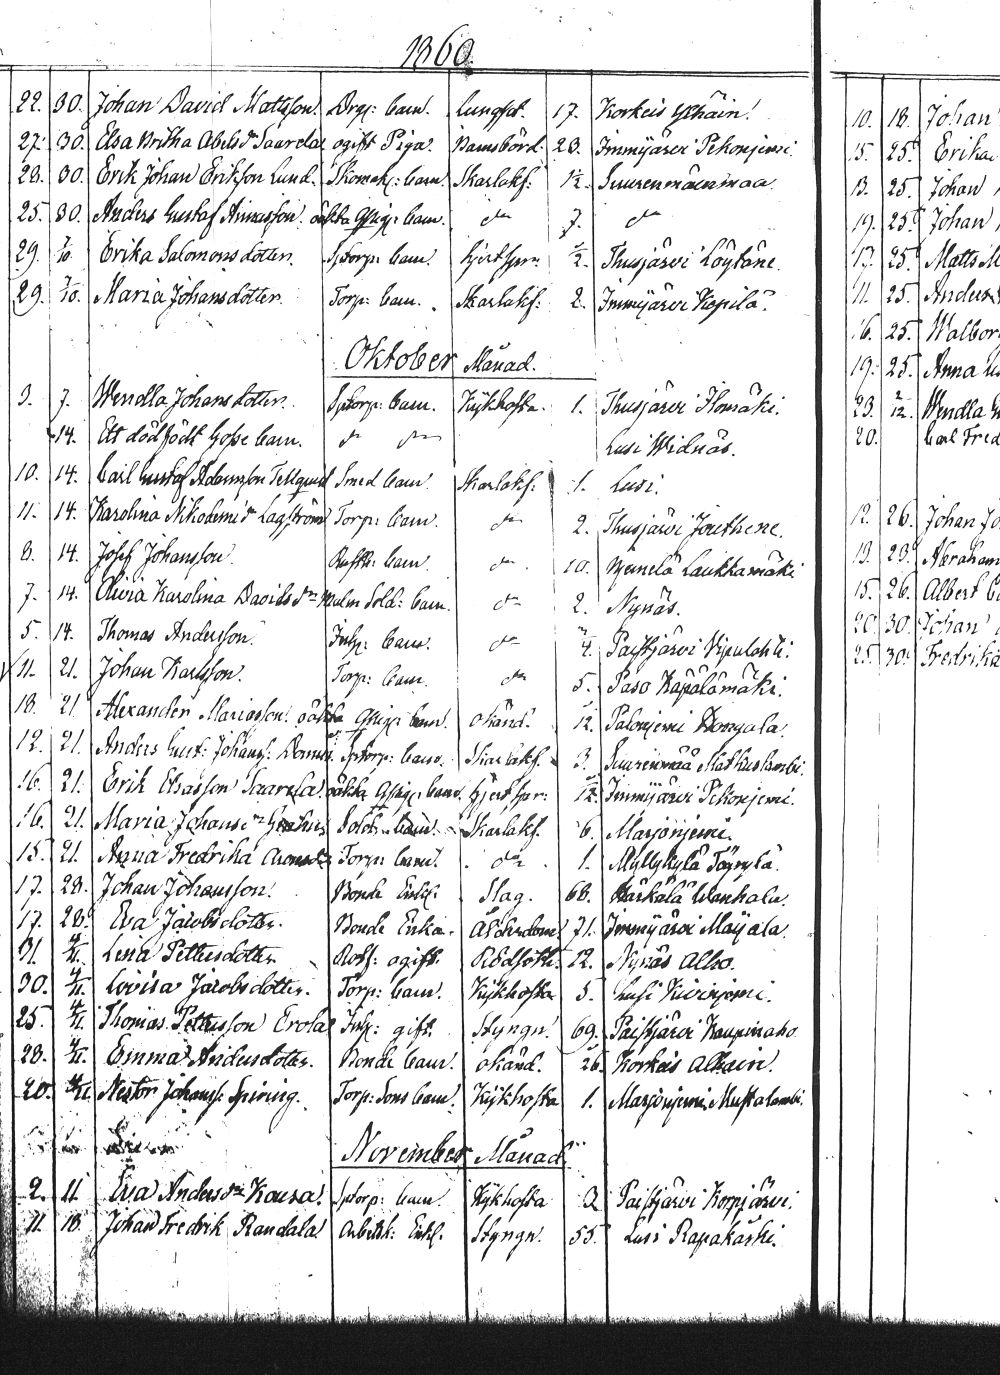 1860.
22. 30. Johan David Mattsson. Dräg: barn. lungsot. 17. Korkeis Ylhäin.
27. 30. Elsa Britha Abels dr Saarela ogift Piga. Barnsbörd. 23. Immijärvi Pekonjemi.
28. 30. Erik Johan Erikson Lund. Skomak: barn. Skarlakf: 1/2. Suurenmäenmaa.
25. 30. Anders Gustaf Annasson. oäkta barn. do 7. do
29. 7/10. Erika Salomons dotter. Sptorp: barn. 1/2. Thusjärvi Löytäne.
29. 7/10. Maria Johans dotter. Torp: barn. Skarlakf: 2. Immijärvi Kopilä.
Oktober Månad.
3. 7. Wendla Johans dotter. Sptorp: barn. Kikhosta. 1. Thusjärvi Ilomäki.
14. Ett dödfödt Gosse barn. do do Lusi Widnäs.
10. 14. Carl Gustaf Adamsson Tellquist Smed barn. Skarlakf: 1. Lusi.
11. 14. Karolina Nikodemi dr Lagström Torp: barn. do 2. Thusjärvi Jouthene.
8. 14. Josef Johansson. barn. do 10. Laukkamäki
7. 14. Olivia Karolina Davids dr Malm Sold: barn. do 2. Nynäs.
5. 14. Thomas Andersson. Inhy: barn. do 4. Paistjärvi Vipulahti.
11. 21. Johan Karlsson. Torp: barn. do 5. Paso Käpälämäki.
18. 21. Alexander Mariasson. oäkta barn. okänd. 12. Palonjemi
12. 21. Anders Gust: Johans: Sptorp: barn. Skarlakf. 3. Suurenmaa
16. 21. Erik Elsasson Saarela oäkta barn. 12. Immijärvi Pekonjemi.
16. 21. Maria Johans dr Sold: barn. Skarlakf. 6. Marjonjemi.
15. 21. Anna Fredrika Torp: barn. do 1. Myllykylä Töyrylä.
17. 28. Johan Johansson. Bonde Enkl: Slag. 68. Härkälä Wanhala.
17. 28. Eva Jacobs dotter. Bonde Enka. Ålderdom 71. Immijärvi Mäijälä.
31. 4/11. Lena Petters dotter ogift. Rödsoth. 12. Nynäs Alho.
30. 4/11. Lovisa Jacobs dotter. Torp: barn. Kikhosta 5. Lusi Kuivinjemi.
25. 4/11. Thomas Pettersson Erola Inhy: gift. Styngn. 69. Paistjärvi Kaupinaho
28. 4/11. Emma Anders dotter. Bonde barn. okänd. 26. Korkeis Alhain.
20. 4/11. Nestor Johans: Spiring. Torp: Sons barn. Kikhosta 1. Marjonjemi Mustalambi.
November Månad.
2. 11. Eva Anders dr Kausa. Sptorp: barn. Kikhosta 2 Paistjärvi Korpijärvi.
11. 18. Johan Fredrik Randala. Arbetsk: Enkl. Styngn. 55. Lusi Rapakäski.
10. 18. Johan
15. 25. Erika
13. 25. Johan
19. 25. Johan
17. 25. Matts
11. 25. Anders
16. 25. Walbor
19. 25. Anna
23. 2/12. Wendla
20. Carl Fred
12. 26. Johan
13. 23. Abraham
15. 26. Albert
20. 30. Johan
25. 30. Fredrika